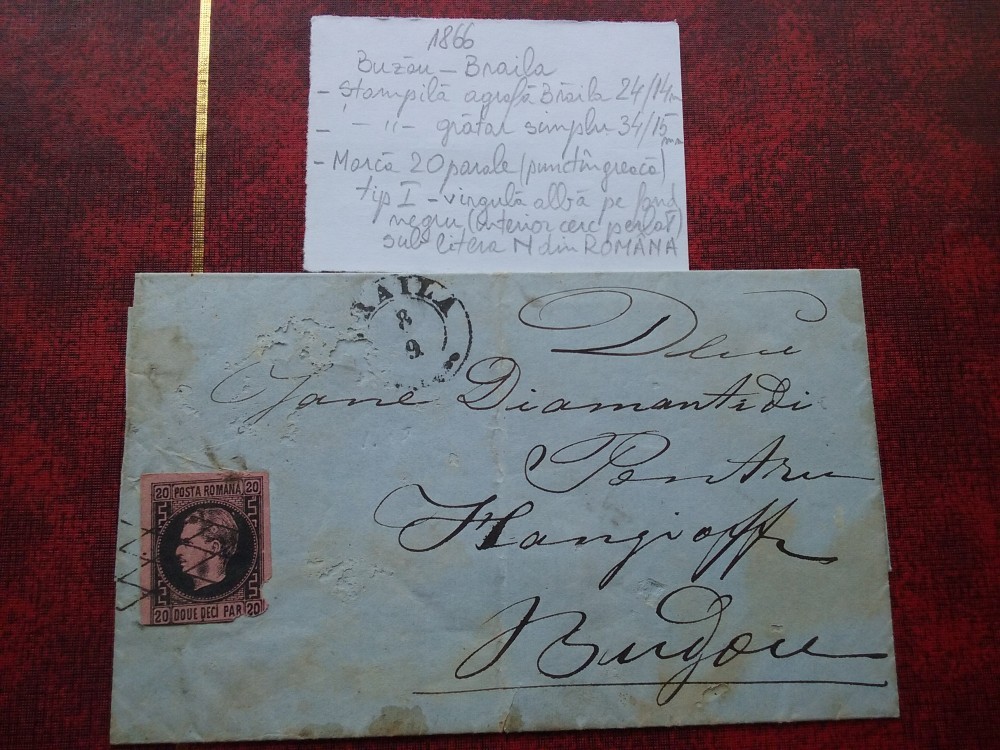 1866
Buzău - Braila
- Ștampilă agrafă Brăila 24/14m
- -"- grătar simplu 34/15 mm
- Marcă 20 parale (punct în greacă)
tip I - virgulă albă pe fond
negru (interior cerc perlat)
sub litera N din ROMÂNA
RAILA
8
9
Jane Diamantidi
Pentru
Hangioff
Buzou
20 POSTA ROMANA 20
20 DOUE DECI PAR 20